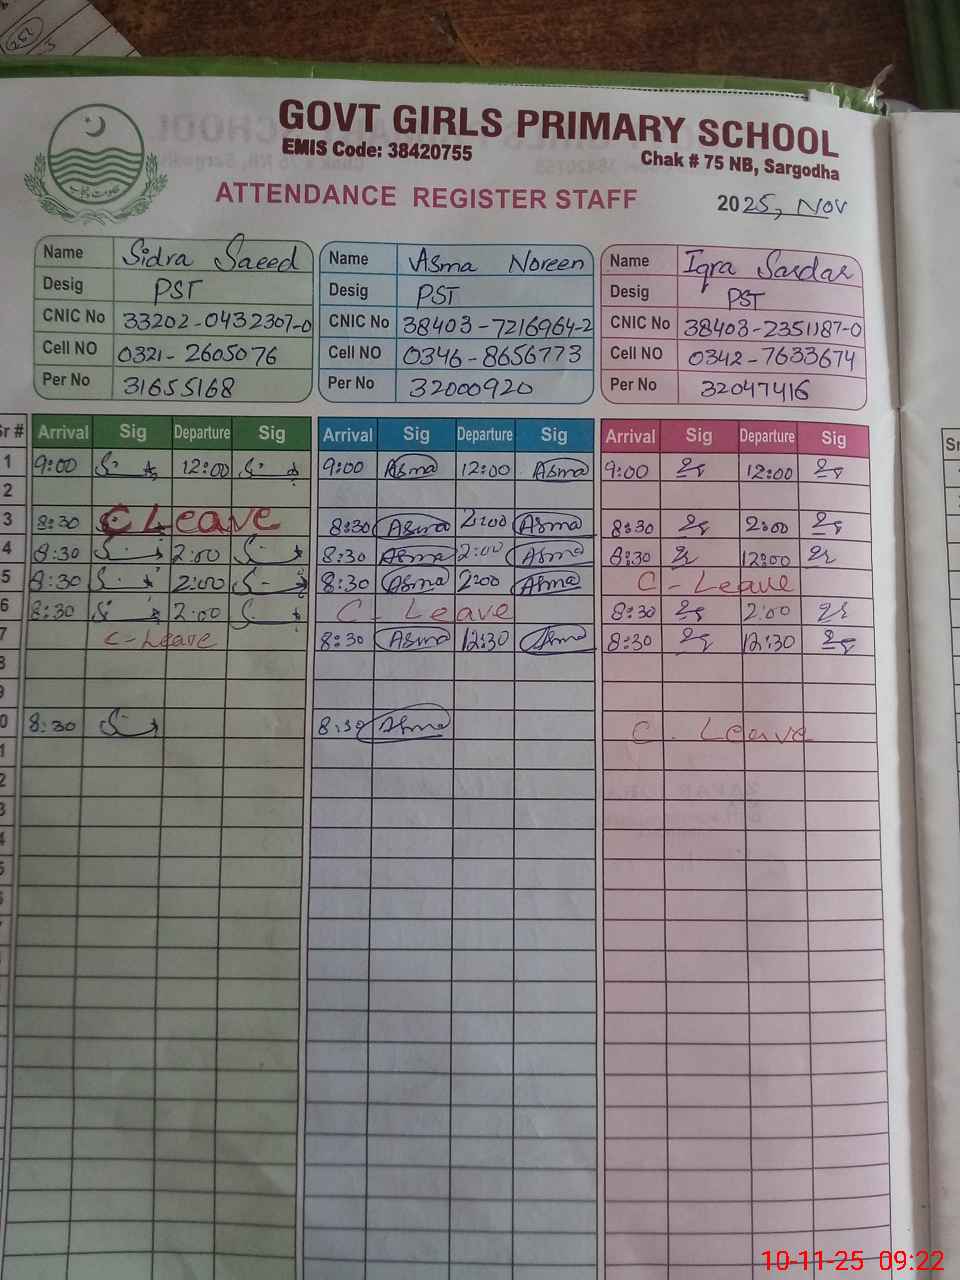 GOVT GIRLS PRIMARY SCHOOL
EMIS Code: 38420755
Chak # 75 NB, Sargodha
ATTENDANCE REGISTER STAFF
2025, Nov
Name Sidra Saeed
Desig PST
CNIC No 33202-0432307-0
Cell NO 0321-2605076
Per No 31655168
Name Asma Noreen
Desig PST
CNIC No 38403-7216964-2
Cell NO 0346-8656773
Per No 32000920
Name Iqra Sardar
Desig PST
CNIC No 38403-2351187-0
Cell NO 0342-7633674
Per No 32047416
Sr # Arrival Sig Departure Sig Arrival Sig Departure Sig Arrival Sig Departure Sig
1 9:00 12:00 9:00 Asma 12:00 Asma 9:00 12:00
2
3 8:30 C Leave 8:30 Asma 2:00 Asma 8:30 2:00
4 8:30 2:00 8:30 Asma 2:00 Asma 8:30 12:00
5 8:30 2:00 8:30 Asma 2:00 Asma C-Leave
6 8:30 2:00 C- Leave 8:30 2:00
7 C-Leave 8:30 Asma 12:30 Asma 8:30 12:30
8
9
0 8:30 8:30 Asma C. Leave
1
2
3
4
5
10-11-25 09:22